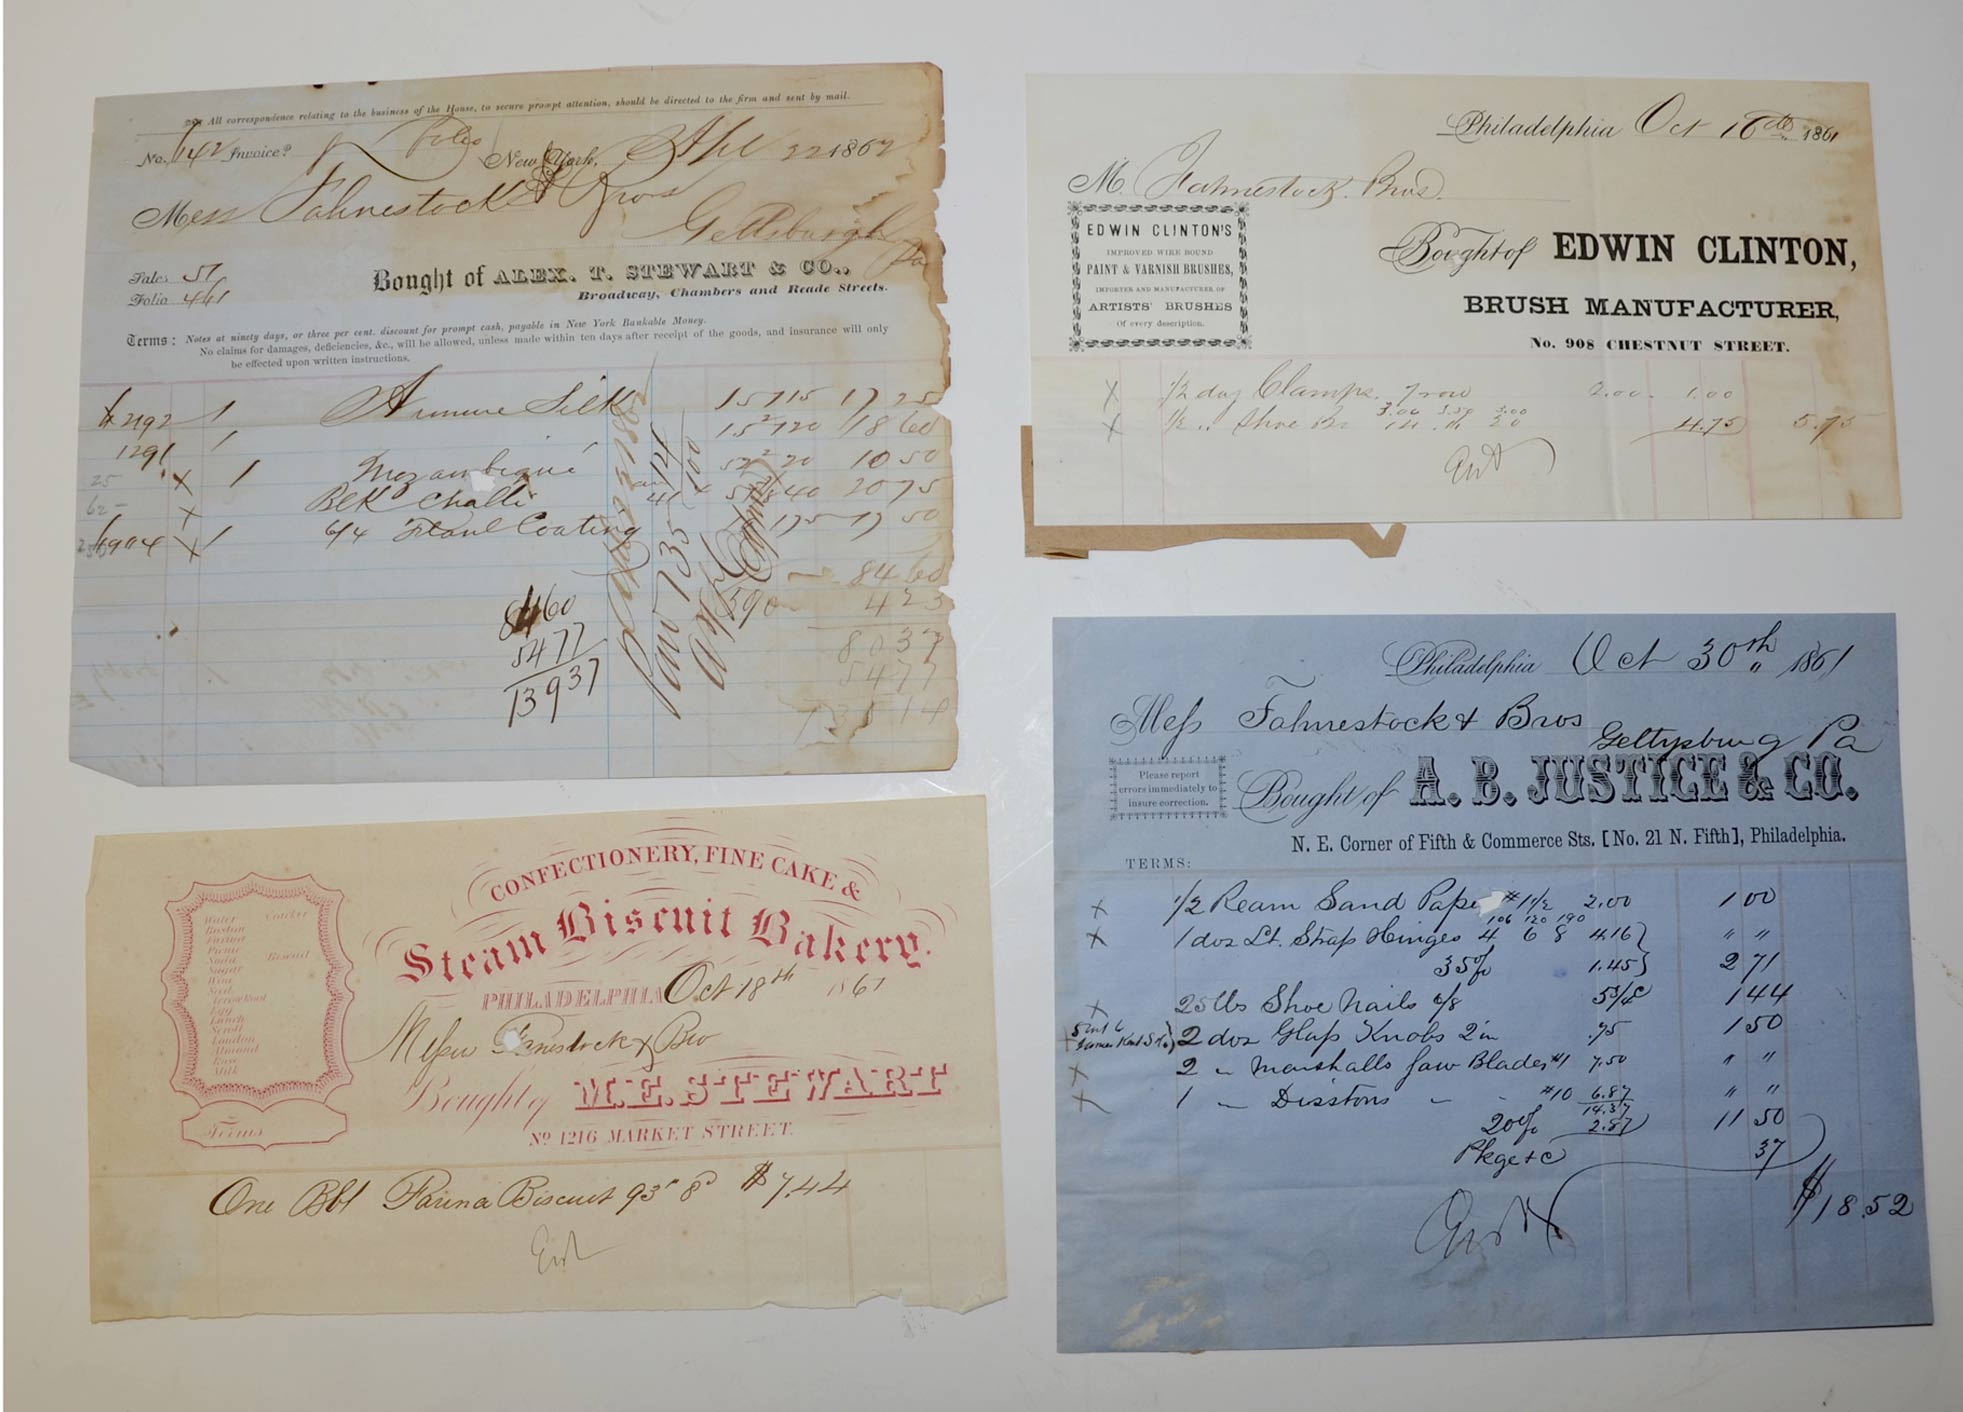 All correspondence relating to the business of the House, to secure prompt attention, should be directed to the firm and sent by mail.
No. 642 Invoice? New York, Apl 22 1862
Mess Fahnestock & Bros
Gettsburgh
Pa
Sales 57
Folio 461
Bought of ALEX. T. STEWART & CO.,
Broadway, Chambers and Reade Streets.
Terms: Notes at ninety days, or three per cent. discount for prompt cash, payable in New York Bankable Money.
No claims for damages, deficiencies, &c., will be allowed, unless made within ten days after receipt of the goods, and insurance will only
be effected upon written instructions.
1 Armure Silk 17 25
1291 1 18 60
25 x 1 Mozambique 10 50
62 x Blk Challi 40 20 75
x 1 6/4 Coating 175 17 50
84 60
4 23
80 37
54 77
8460
5477
13937
Philadelphia Oct 16th 1861
M. Fahnestock Bros.
EDWIN CLINTON'S
IMPROVED WIRE BOUND
PAINT & VARNISH BRUSHES,
IMPORTER AND MANUFACTURER OF
ARTISTS' BRUSHES
Of every description.
Bought of EDWIN CLINTON,
BRUSH MANUFACTURER,
No. 908 CHESTNUT STREET.
x 1/2 doz Clamps. 7 row 2.00. 1.00
3.00 3.50 3.00
x 1/2 " Shoe Br 4.75 5.75
CONFECTIONERY, FINE CAKE &
Steam Biscuit Bakery.
PHILADELPHIA Oct 18th 1861
Water Cracker
Boston
Butter
Picnic
Soda Biscuit
Sugar
Wine
Seed
Arrow Root
Egg
Lunch
Scroll
London
Almond
Milk
Terms
Messrs Fanestock & Bro
Bought of M.E. STEWART
No 1216 MARKET STREET.
One Bbl Farina Biscuit 93 8 $7.44
Philadelphia Oct 30th 1861
Mess Fahnestock & Bros
Gettysburg Pa
Please report
errors immediately to
insure correction.
Bought of A. B. JUSTICE & CO.
N. E. Corner of Fifth & Commerce Sts. [No. 21 N. Fifth], Philadelphia.
TERMS:
x 1/2 Ream Sand Pape #1 1/2 2.00 1 00
106 120 190
x 1 doz Lt. Strap Hinges 4 6 8 4.16 " "
35% 1.45 2 71
x 25 lbs Shoe Nails 6/8 5 3/4 c 1 44
2 doz Glass Knobs 2 in .75 1 50
x 2 " Marshalls Saw Blades #1 7.50 " "
x 1 " Disstons " " #10 6.87 " "
14.37
20% 2.87 11 50
Pkge &c 37
$18.52